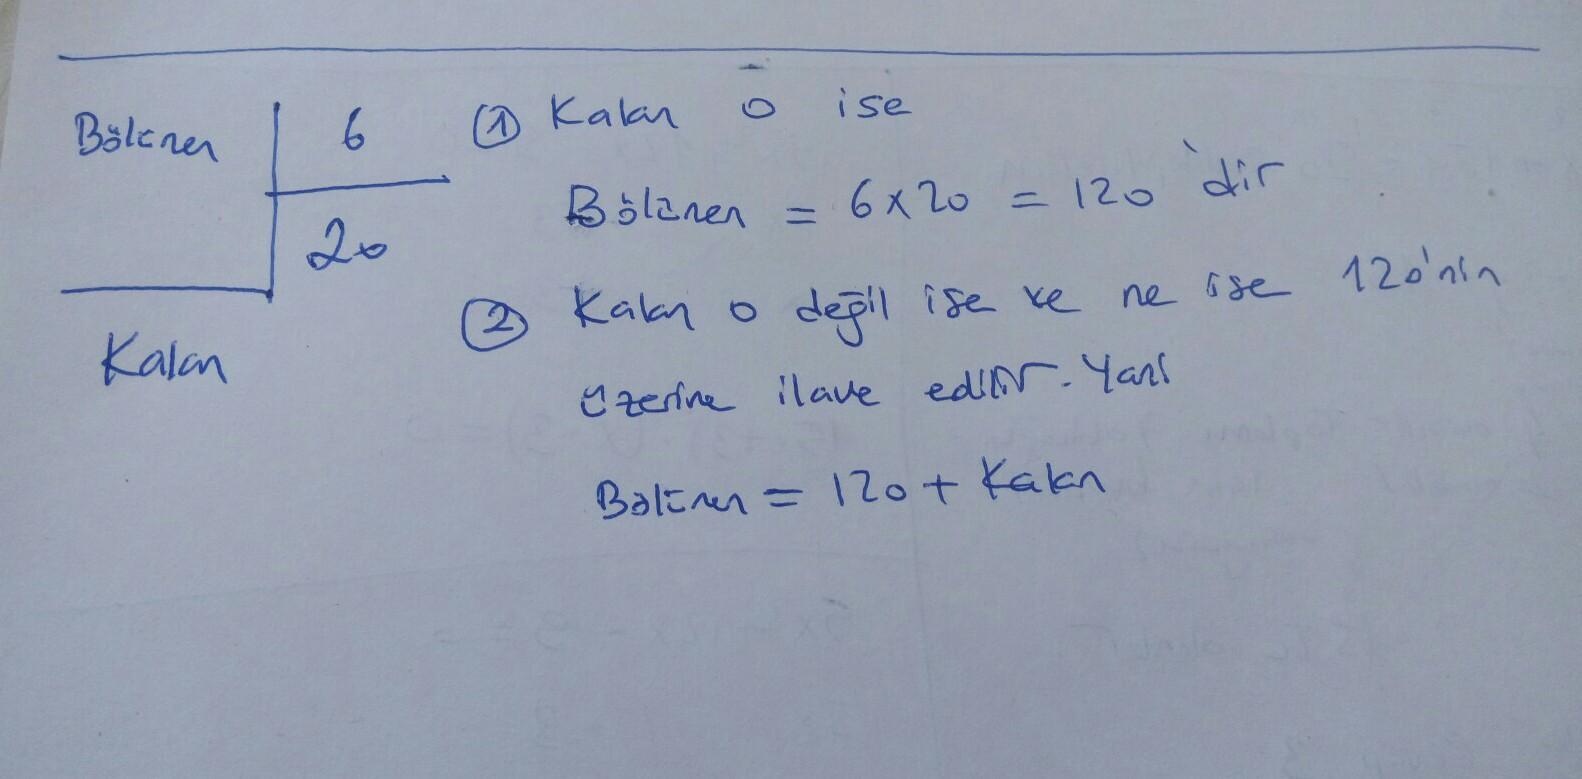 Bölünen 6
20
Kalan
① Kalan 0 ise
Bölünen = 6x20 = 120 'dir
② Kalan 0 değil ise ve ne ise 120'nin
üzerine ilave edilir. Yani
Bölünen = 120 + Kalan